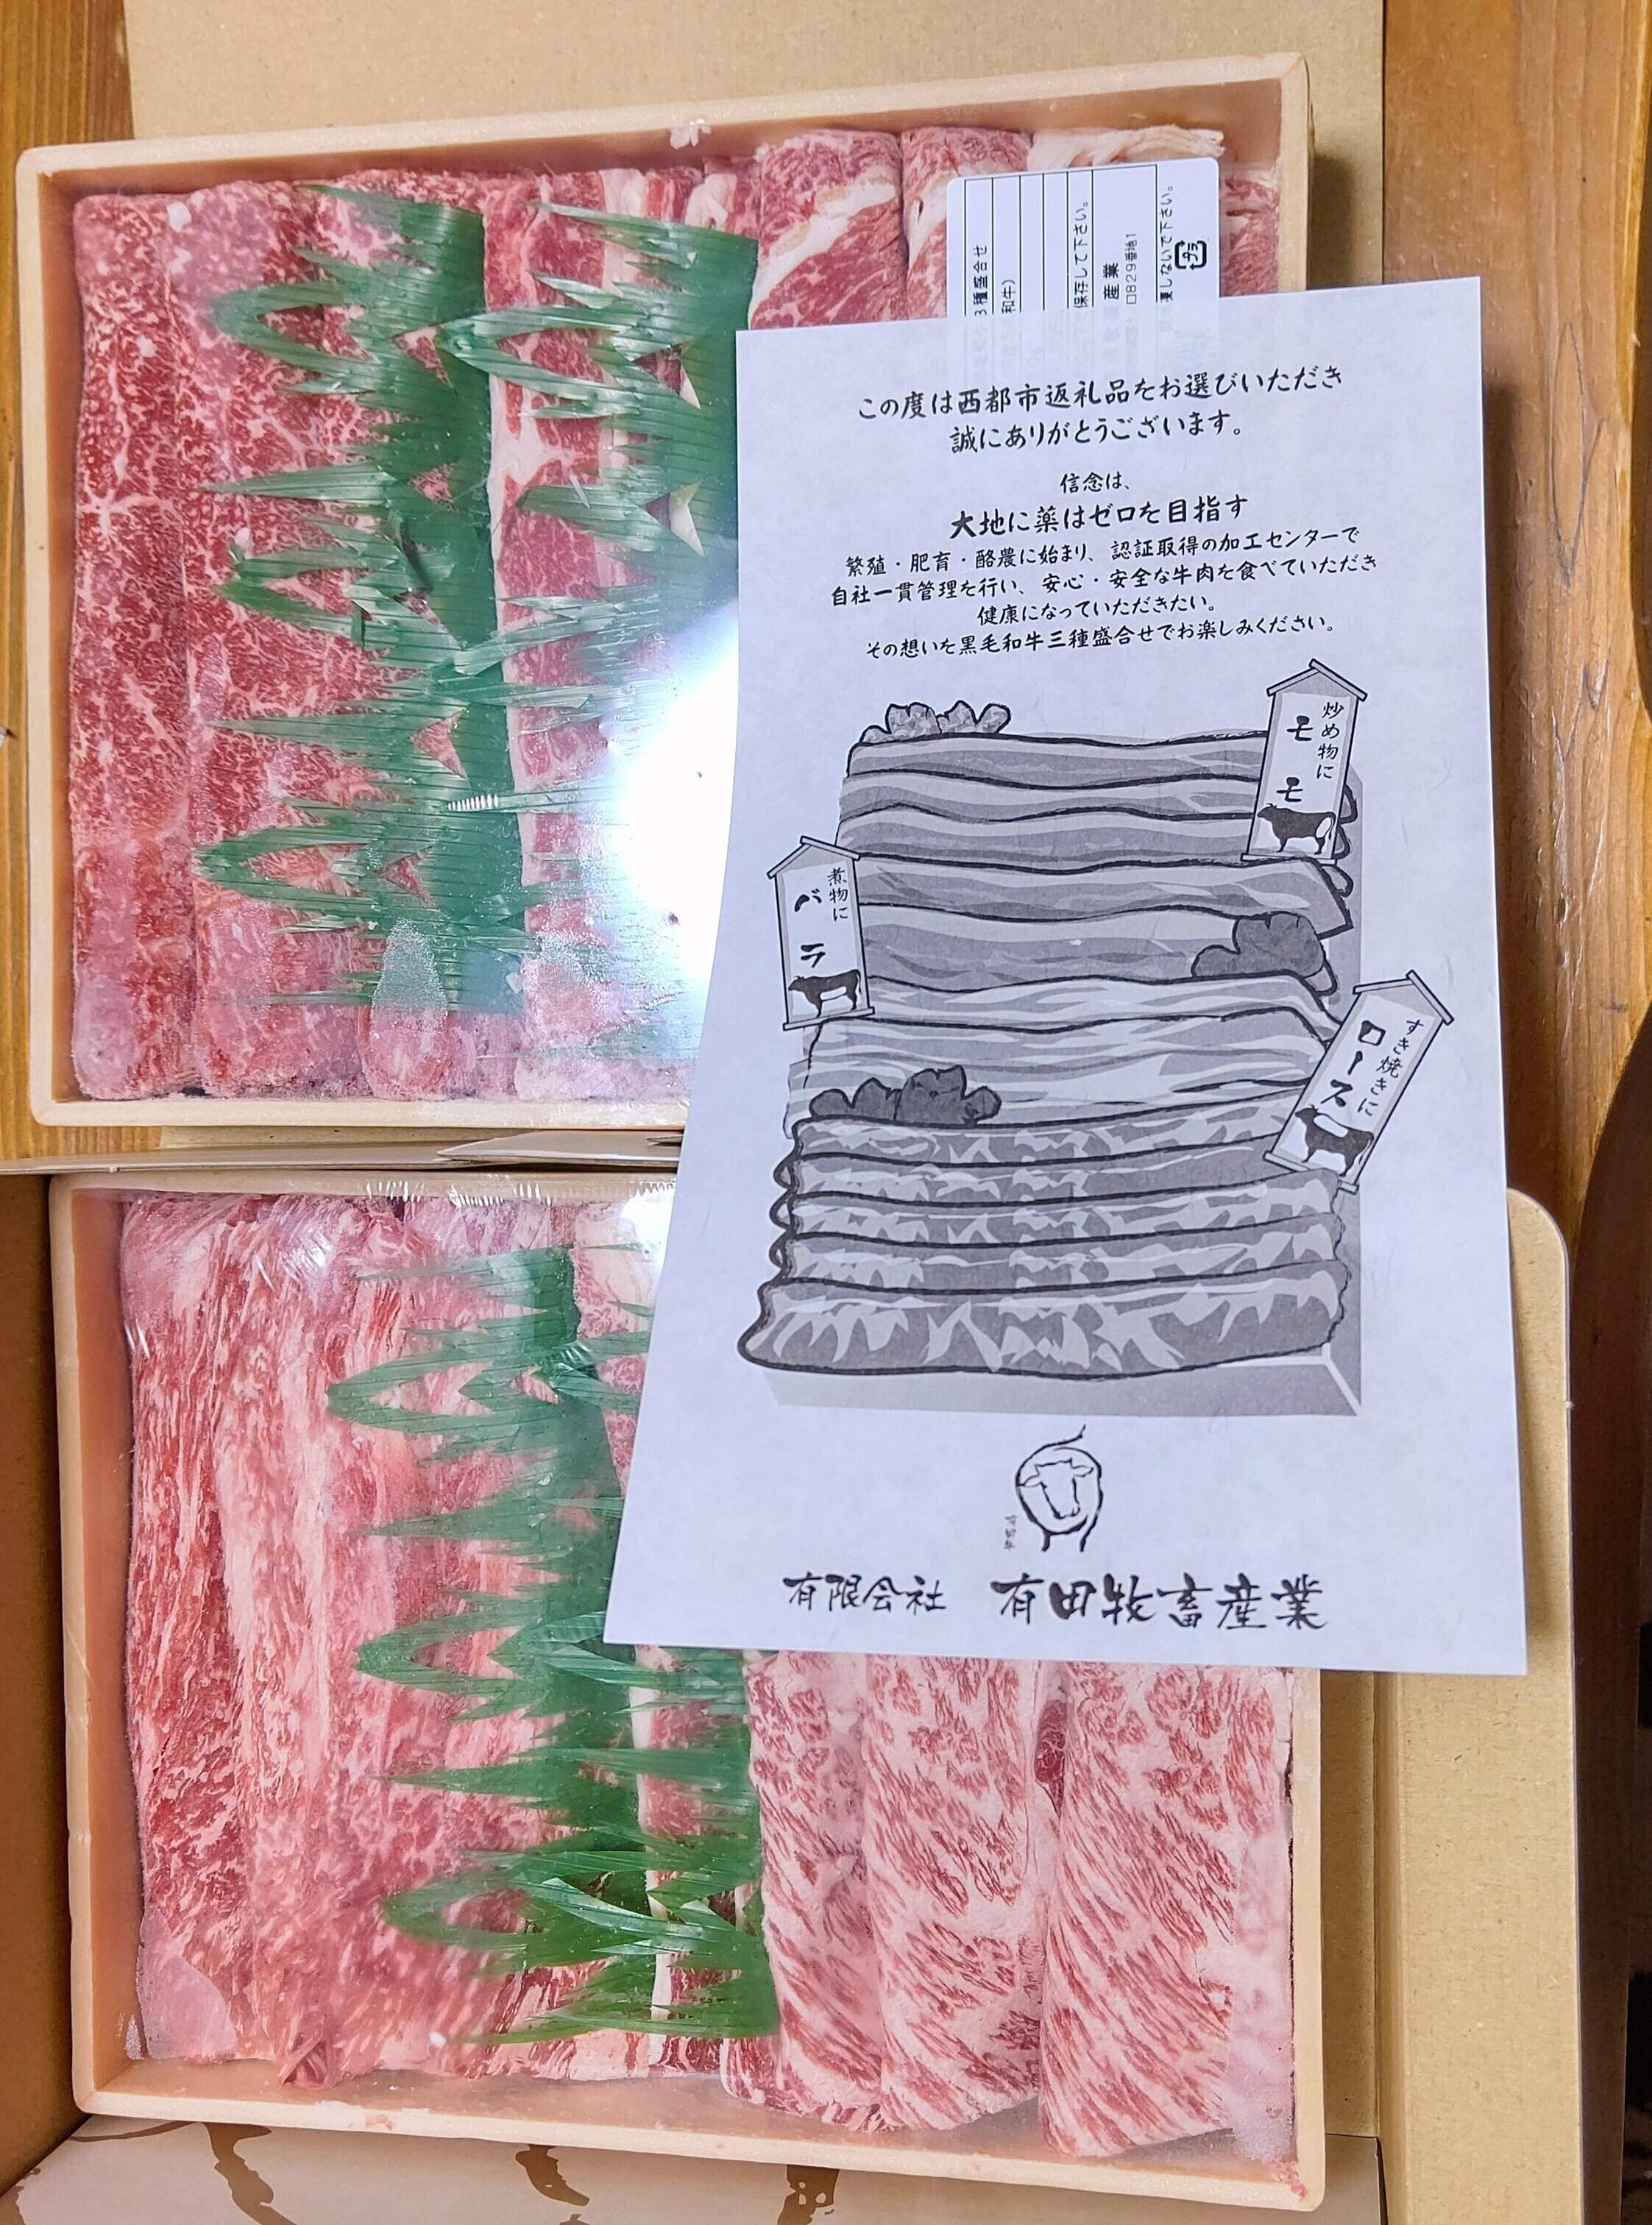 3種盛合せ
和牛)
保存して下さい。
産業
口829番地1
凍しないで下さい。
プラ
この度は西都市返礼品をお選びいただき
誠にありがとうございます。
信念は、
大地に薬はゼロを目指す
繁殖・肥育・酪農に始まり、認証取得の加工センターで
自社一貫管理を行い、安心・安全な牛肉を食べていただき
健康になっていただきたい。
その想いを黒毛和牛三種盛合せでお楽しみください。
炒め物に
モモ
煮物に
バラ
すき焼きに
ロース
有限会社 有田牧畜産業